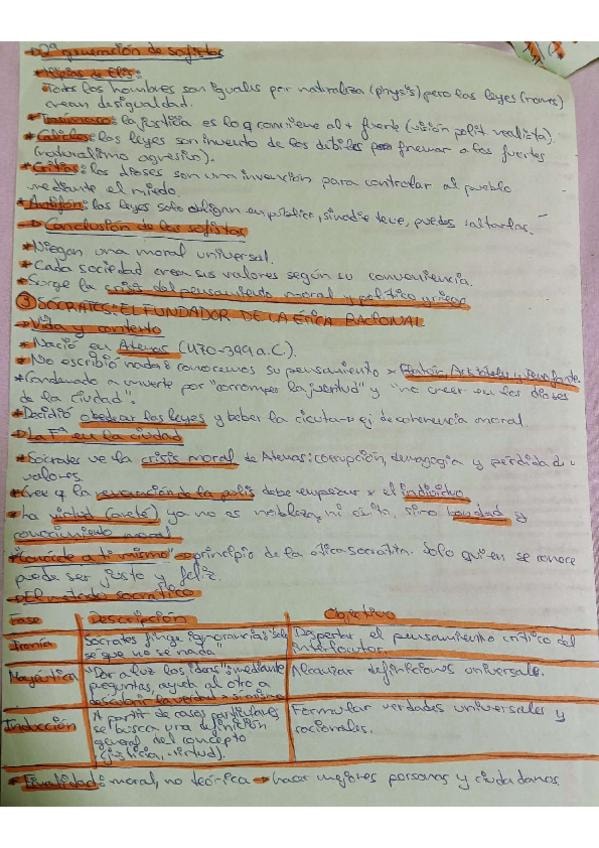 → 2ª generación de sofistas
* Hipias de Elis:
Todos los hombres son iguales por naturaleza (physis) pero las leyes (nomos)
crean desigualdad.
* Trasímaco: la justicia es lo q conviene al + fuerte (visión polít realista).
* Calicles: las leyes son invento de los débiles para frenar a los fuertes
(naturalismo agresivo).
* Critias: los dioses son una invención para controlar al pueblo
mediante el miedo.
* Antifón: las leyes solo obligan en público, si nadie te ve, puedes saltarlas.
→ Conclusión de los sofistas
* Niegan una moral universal.
* Cada sociedad crea sus valores según su conveniencia.
* Surge la crisis del pensamiento moral y político griego
③ SÓCRATES: EL FUNDADOR DE LA ÉTICA RACIONAL
→ Vida y contexto
* Nació en Atenas (470-399 a.C).
* No escribió nada: conocemos su pensamiento x Platón, Aristóteles y Jenofonte.
* Condenado a muerte por "corromper la juventud" y "no creer en los dioses
de la ciudad".
* Decidió obedecer las leyes y beber la cicuta → ej de coherencia moral.
→ La Fª en la ciudad
* Sócrates ve la crisis moral de Atenas: corrupción, demagogia y pérdida de
valores.
* Cree q la renovación de la polis debe empezar x el individuo
* La virtud (areté) ya no es nobleza, ni éxito, sino bondad y
conocimiento moral
* "Conócete a ti mismo" → principio de la ética socrática. Solo quien se conoce
puede ser justo y feliz.
→ El método socrático
Fase Descripción Objetivo
Ironía Sócrates finge ignorancia: "solo Despertar el pensamiento crítico del
sé que no sé nada" interlocutor.
Mayéutica "Dar a luz las ideas": mediante Alcanzar definiciones universales.
preguntas, ayuda al otro a
descubrir la verdad x sí mismo
Inducción A partir de casos particulares Formular verdades universales y
se busca una definición racionales.
general del concepto
(justicia, virtud).
* Finalidad: moral, no teórica → hacer mejores personas y ciudadanos.